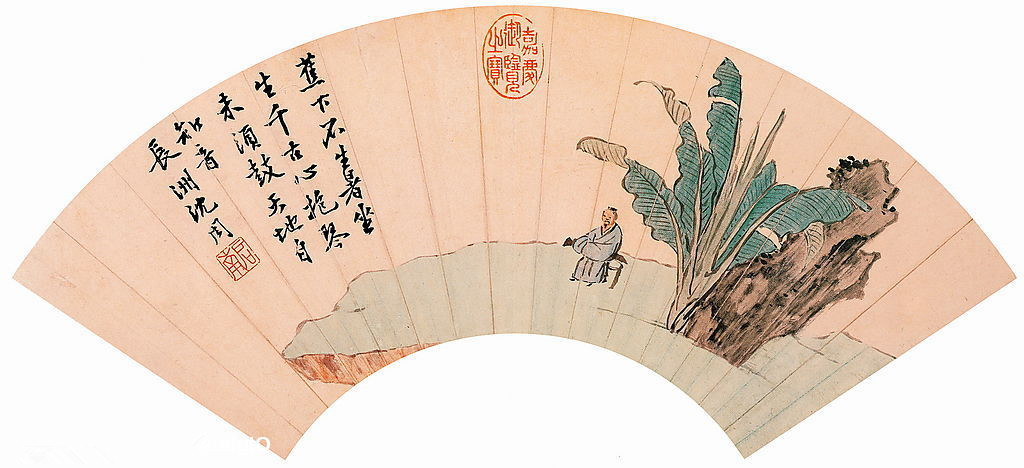 嘉慶
御覽
之寶
蕉下不生暑坐
生千古心抱琴
未須鼓天地自
知音
長洲沈周
啓南